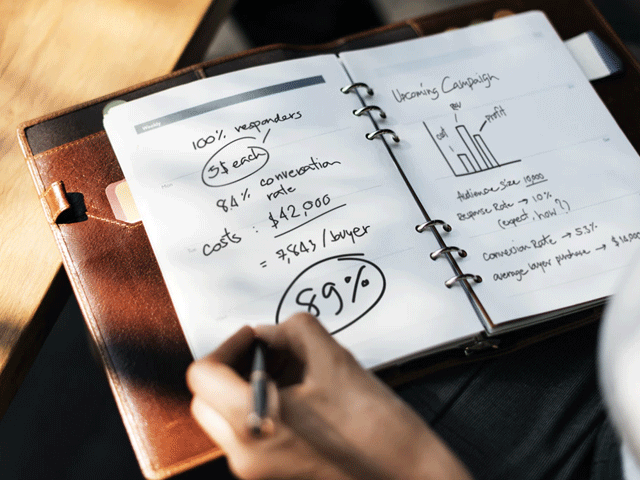 Weekly
100% responders
5$ each
84% conversation
rate
costs : $42,000
= 7,843 / buyer
89%
Upcoming Campaign
cost
rev
profit
Audience size 10,000
Response Rate → 10%
(expect, how?)
conversion Rate → 53%
average buyer purchase →